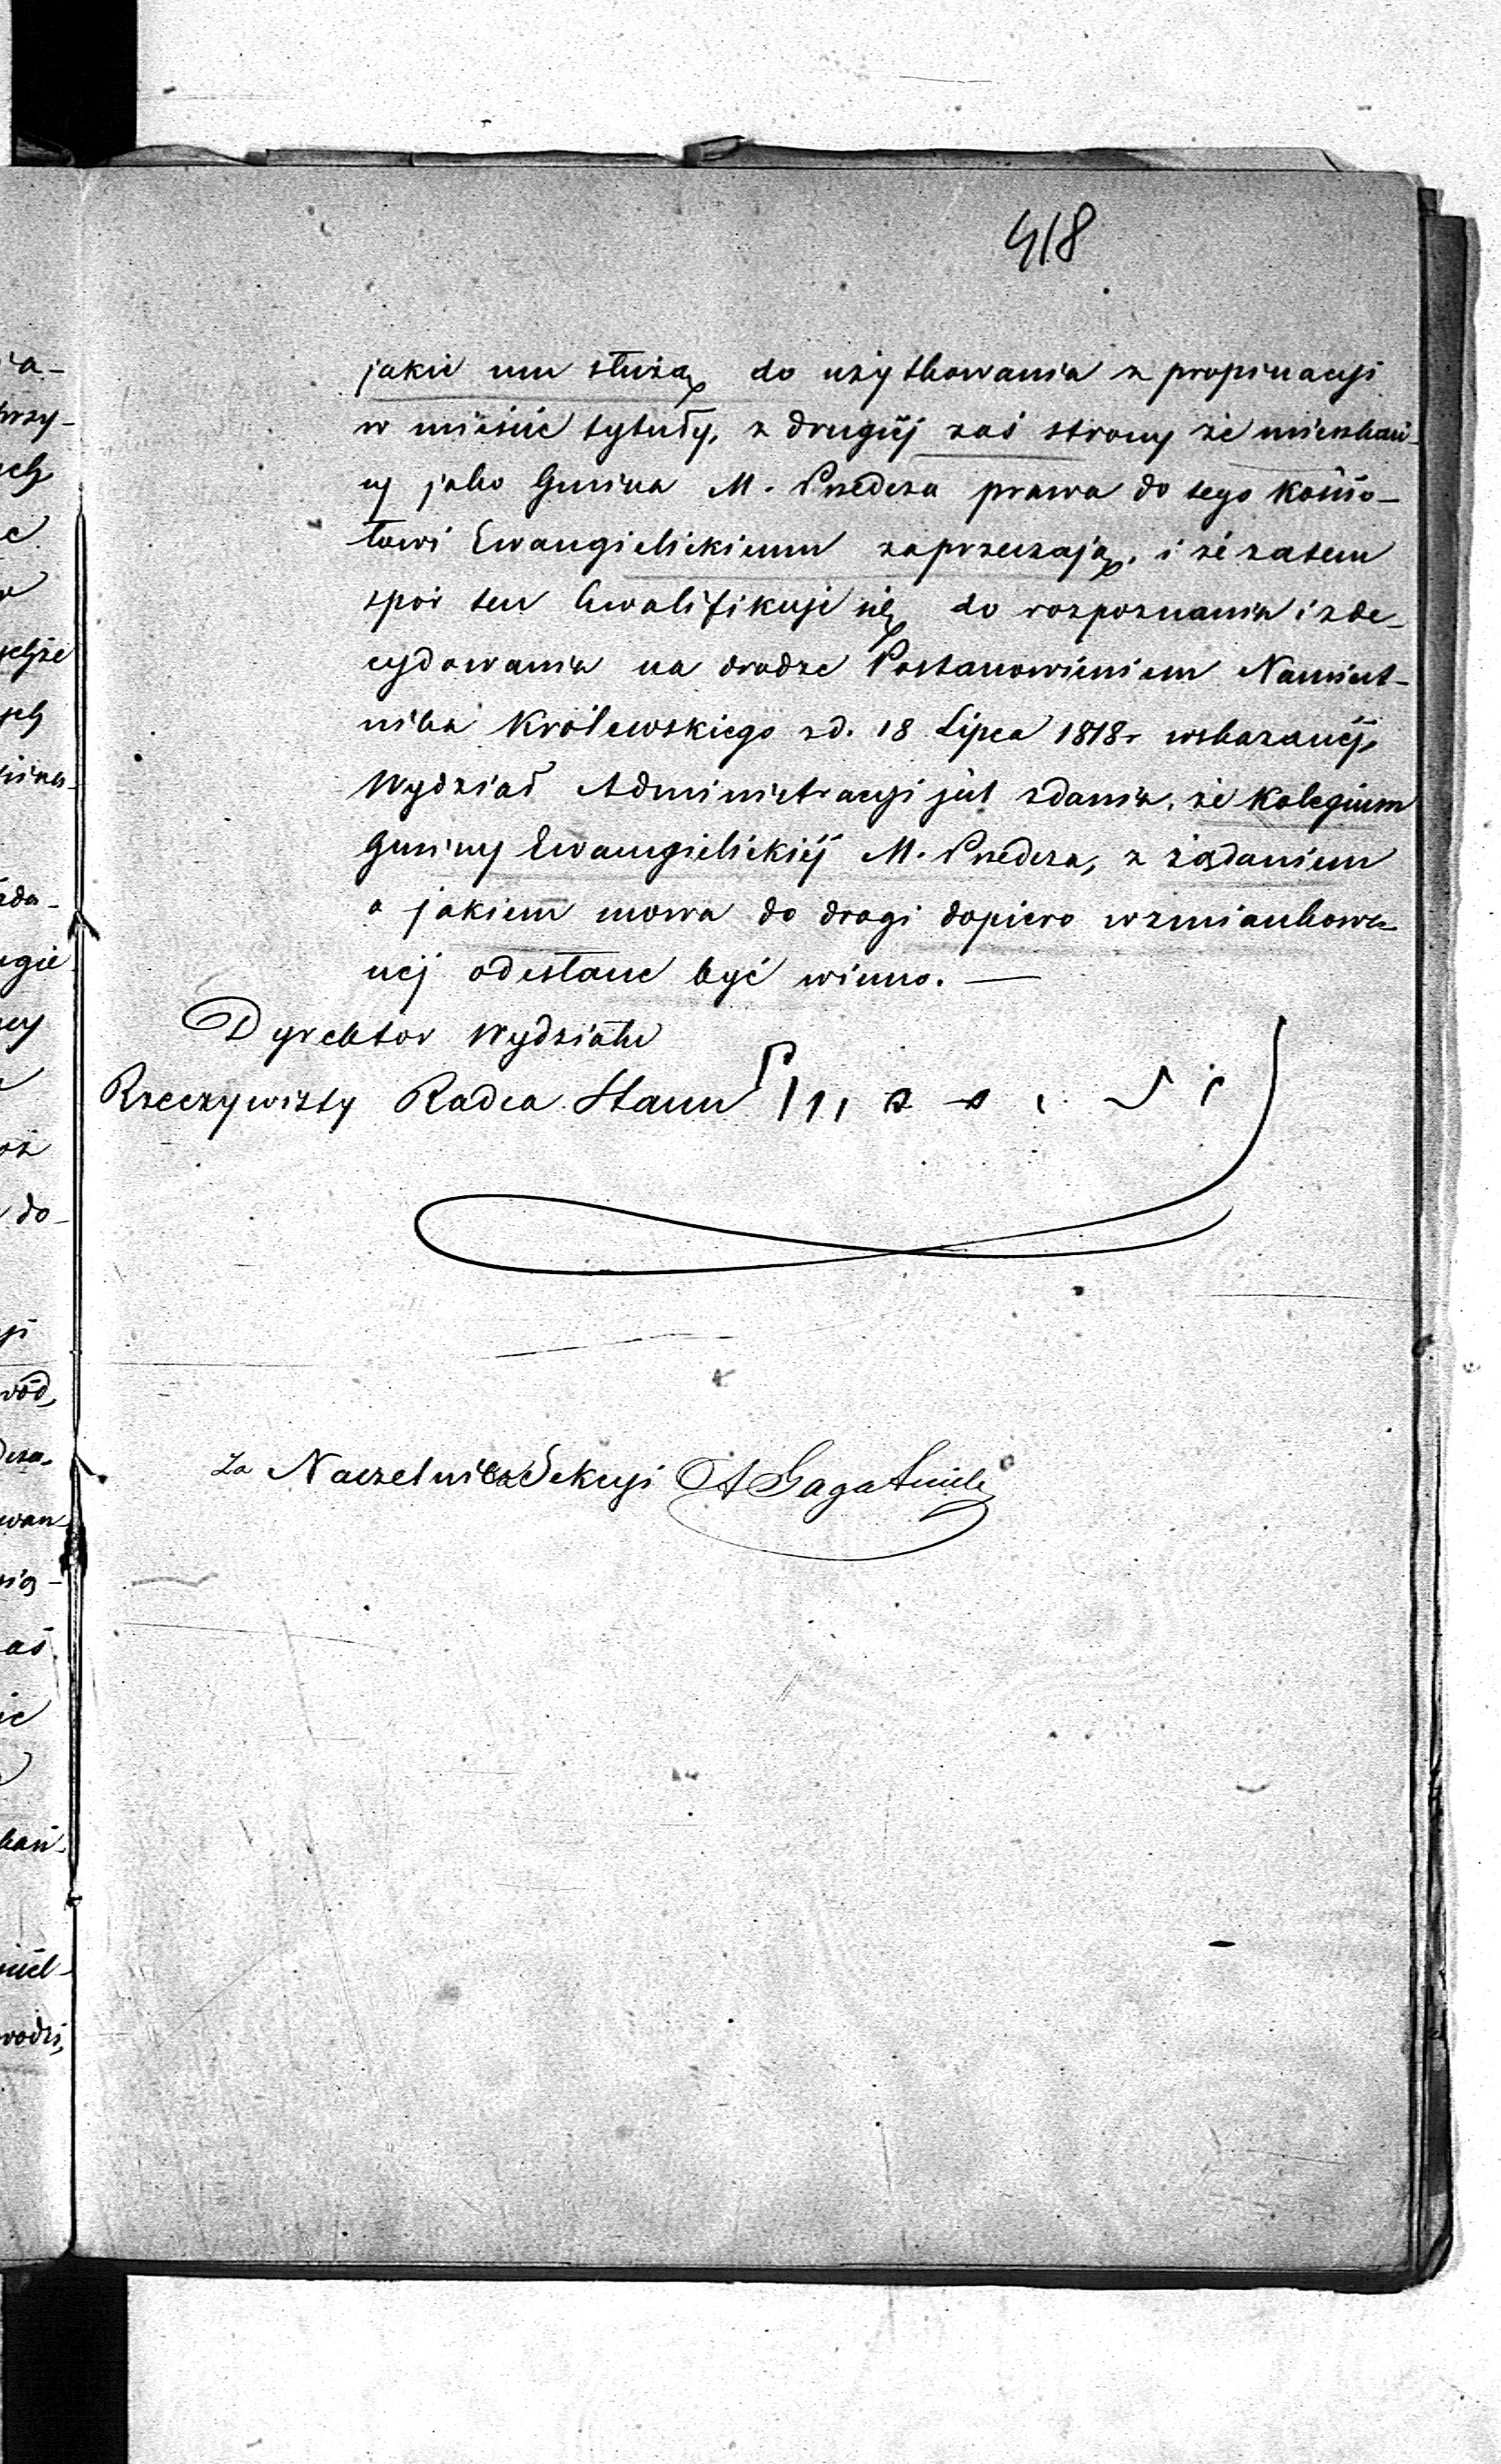 418
jakie mu służą do użytkowania z propinacyi
w mieście tytuły, z drugiéj zaś strony że mieszkań-
cy jako Gmina M. Przedcza prawa do tego kościo-
łowi Ewangielickiemu zaprzeczają, i że zatem
spór ten kwalifikuje się do rozpoznania i zde-
cydowania na drodze Postanowieniem Namiest-
nika Królewskiego z d. 18 Lipca 1818 r wskazanéj,
Wydział Administracyi jest zdania, że Kolegium
Gminy Ewangielickiéj M. Przedcza, z żądaniem
o jakiem mowa do drogi dopiero wzmiankowa
nej odesłane być winno. —
Dyrektor Wydziału
Rzeczywisty Radca Stanu
Za Naczelnika Sekcyi